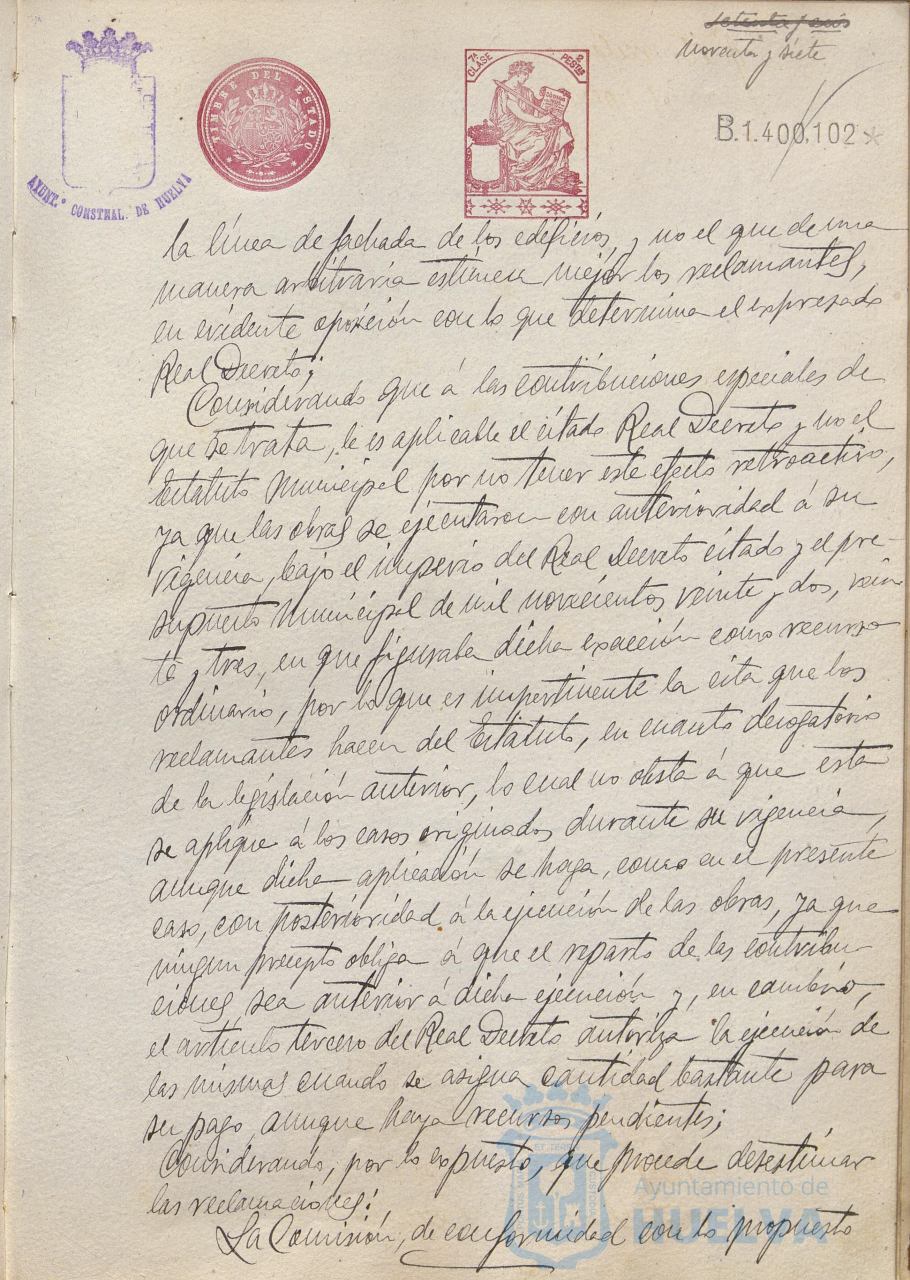 setenta y seis
noventa y siete
7ª CLASE
2 PESTAS
TIMBRE DEL ESTADO
B.1.400,102*
AYUNT.º CONSTNAL. DE HUELVA
la línea de fachada de los edificios, y no el que de una
manera arbitraria estimesen mejor los reclamantes,
en evidente oposición con lo que determina el expresado
Real Decreto;
Considerando que á las contribuciones especiales de
que se trata, le es aplicable el citado Real Decreto y no el
Estatuto Municipal por no tener este efecto retroactivo,
ya que las obras se ejecutaron con anterioridad á su
vigencia, bajo el imperio del Real Decreto citado y el pre-
supuesto Municipal de mil novecientos veinte y dos, vein
te y tres, en que figuraba dicha exacción como recurso
ordinario, por lo que es impertinente la cita que los
reclamantes hacen del Estatuto, en cuanto derogatorio
de la legislación anterior, lo cual no obsta á que esta
se aplique á los casos originados durante su vigencia,
aunque dicha aplicación se haga, como en el presente
caso, con posterioridad á la ejecución de las obras, ya que
ningun precepto obliga á que el reparto de las contribu-
ciones, sea anterior á dicha ejecución y, en cambio,
el artículo tercero del Real Decreto autoriza la ejecución de
las mismas cuando se asigna cantidad bastante para
su pago, aunque haya recursos pendientes;
Considerando, por lo expuesto, que procede desestimar
las reclamaciones:
La Comisión, de conformidad con lo propuesto
Ayuntamiento de
HUELVA